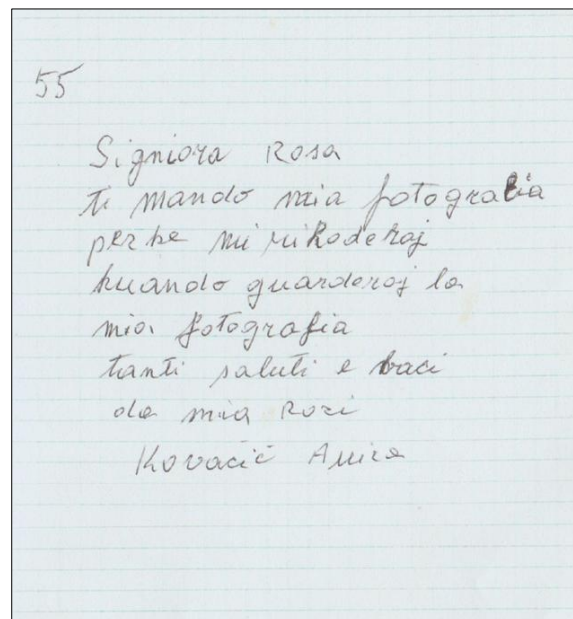 55
Signiora Rosa
ti mando mia fotografia
perke mi rikoderaj
kuando guarderaj la
mia fotografia
tanti saluti e baci
da mia Rozi
Kovačić Anica